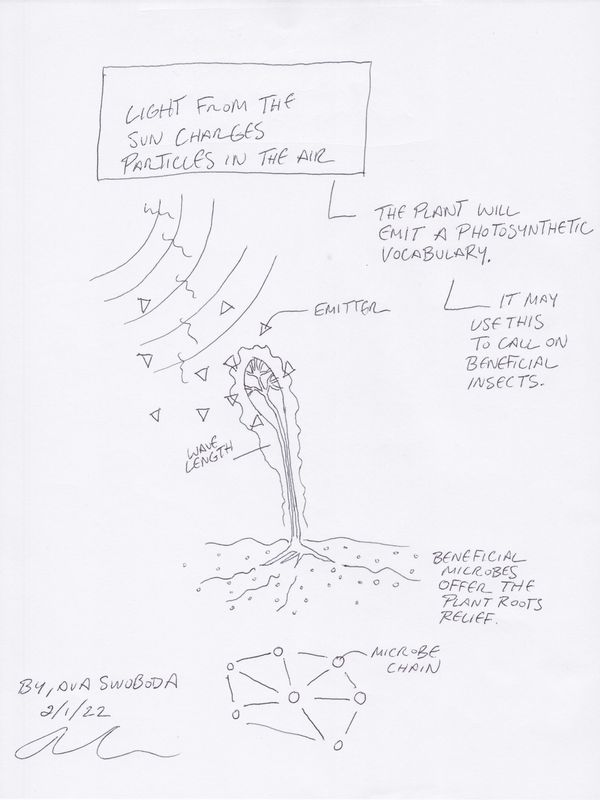 LIGHT FROM THE
SUN CHARGES
PARTICLES IN THE AIR
THE PLANT WILL
EMIT A PHOTOSYNTHETIC
VOCABULARY.
IT MAY
USE THIS
TO CALL ON
BENEFICIAL
INSECTS.
EMITTER
WAVE
LENGTH
BENEFICIAL
MICROBES
OFFER THE
PLANT ROOTS
RELIEF.
MICROBE
CHAIN
BY, AVA SWOBODA
2/1/22